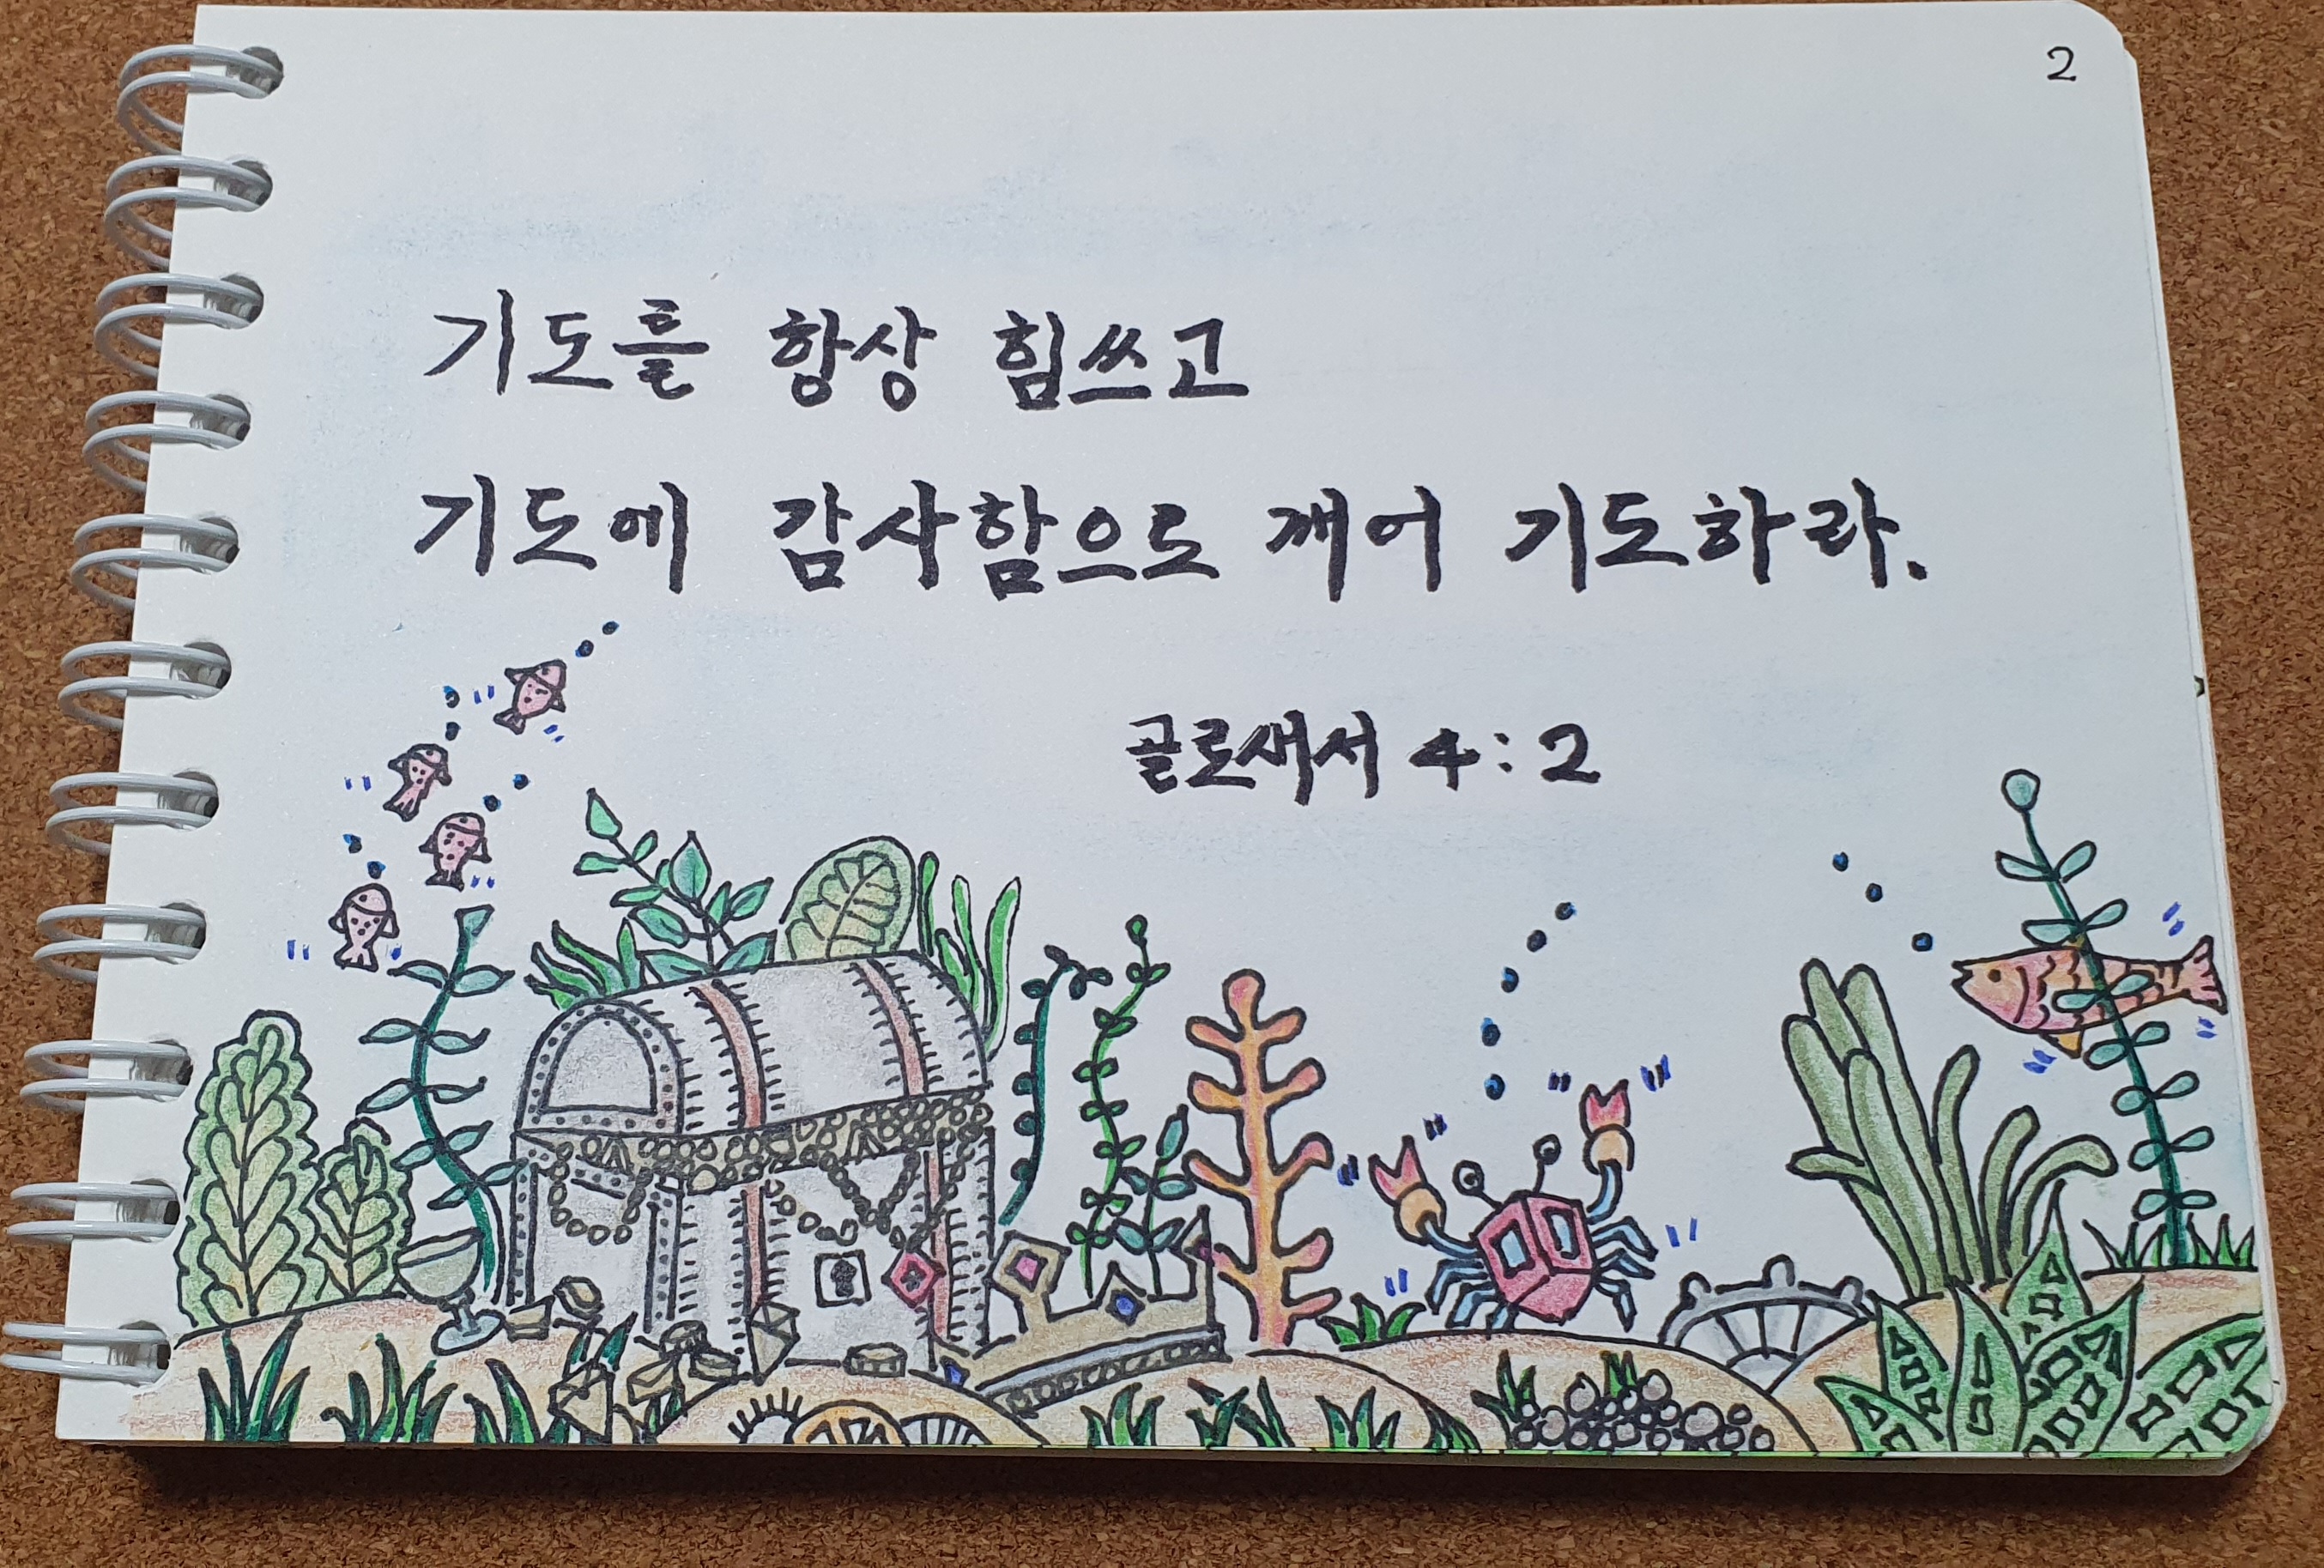 2
기도를 항상 힘쓰고
기도에 감사함으로 깨어 기도하라.
골로새서 4:2